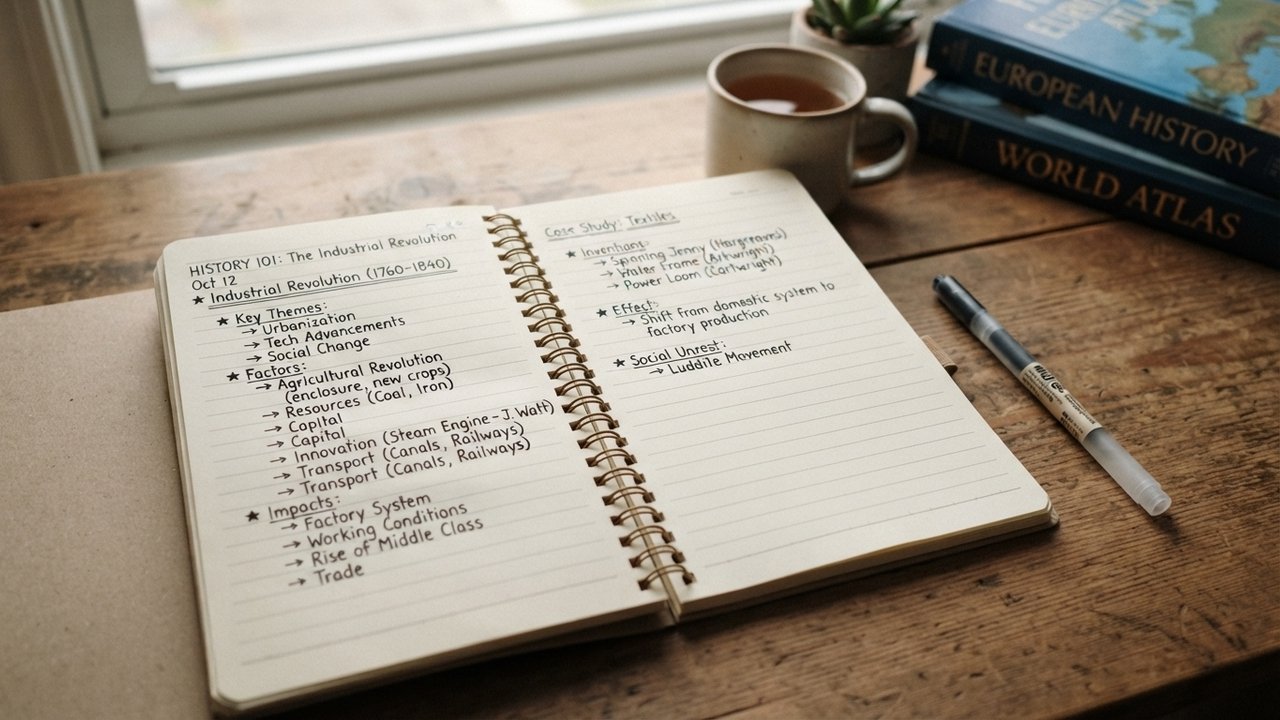 HISTORY 101: The Industrial Revolution
Oct 12
★ Industrial Revolution (1760-1840)
★ Key Themes:
→ Urbanization
→ Tech Advancements
→ Social Change
★ Factors:
→ Agricultural Revolution
(enclosure, new crops)
→ Resources (Coal, Iron)
→ Copital
→ Capital
→ Innovation (Steam Engine - J. Watt)
→ Transport (Canals, Railways)
→ Transport (Canals, Railways)
★ Impacts:
→ Factory System
→ Working Conditions
→ Rise of Middle Class
→ Trade
Case Study: Textiles
★ Inventions:
→ Jenny (Hargreaves)
→ Water Frame (Arkwright)
→ Power Loom (Cartwright)
★ Effect:
→ Shift from domestic system to
factory production
★ Social Unrest:
→ Luddite Movement
EUROPEAN HISTORY
WORLD ATLAS